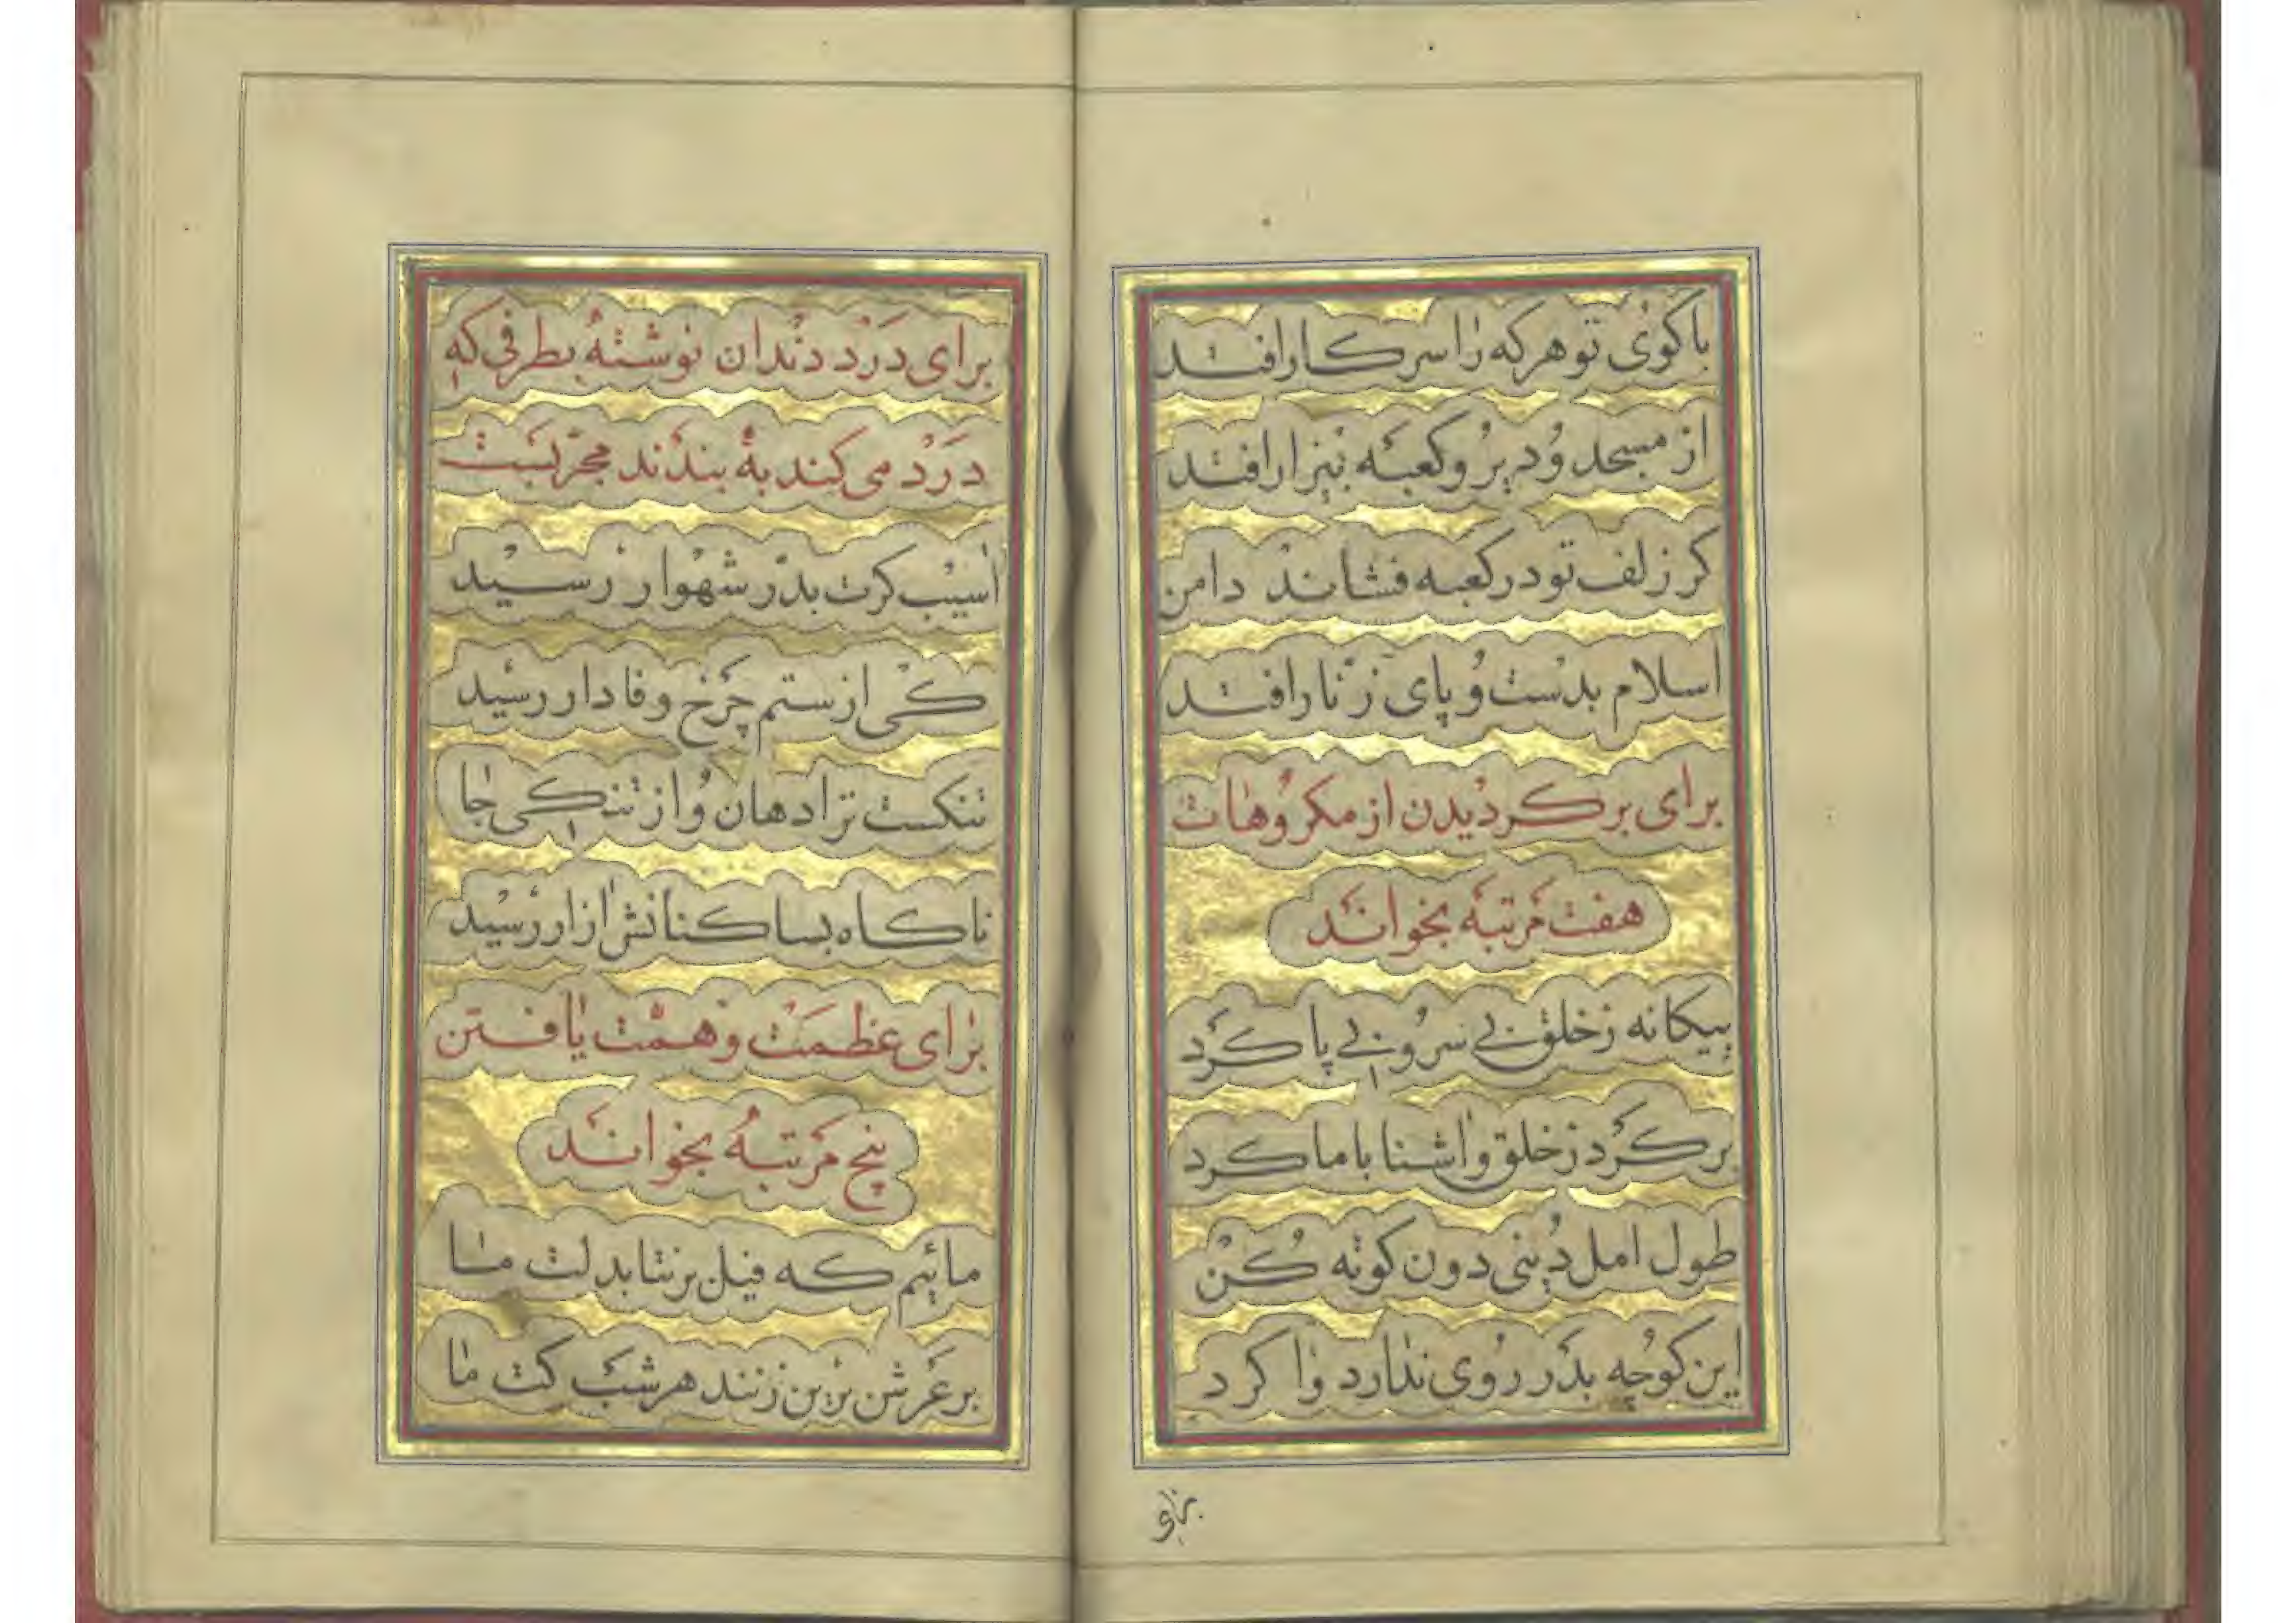 باکوی تو هرکه را سر کار افتد
از مسجد و دیر و کعبه بیزار افتد
کر زلف تو در کعبه فشاند دامن
اسلام بدست و پای زنار افتد
برای برکردیدن از مکروهات
هفت مرتبه بخواند
بیکانه ز خلق بی سر و بی پا کرد
برکرد ز خلق و اشنا با ما کرد
طول امل دینی دون کوته کن
این کوچه بدر روی ندارد وا کرد
برای
برای درد دندان نوشته بطرفی که
درد می کند به بندند مجربست
اسیب کرت بدر شهوار رسید
کی از ستم چرخ وفادار رسید
تنکست ترا دهان و از تنکی جا
ناکاه بساکنانش ازار رسید
برای عظمت و همت یافتن
پنج مرتبه بخواند
مائیم که فیل برنتابد لت ما
بر عرش برین زنند هر شب کت ما